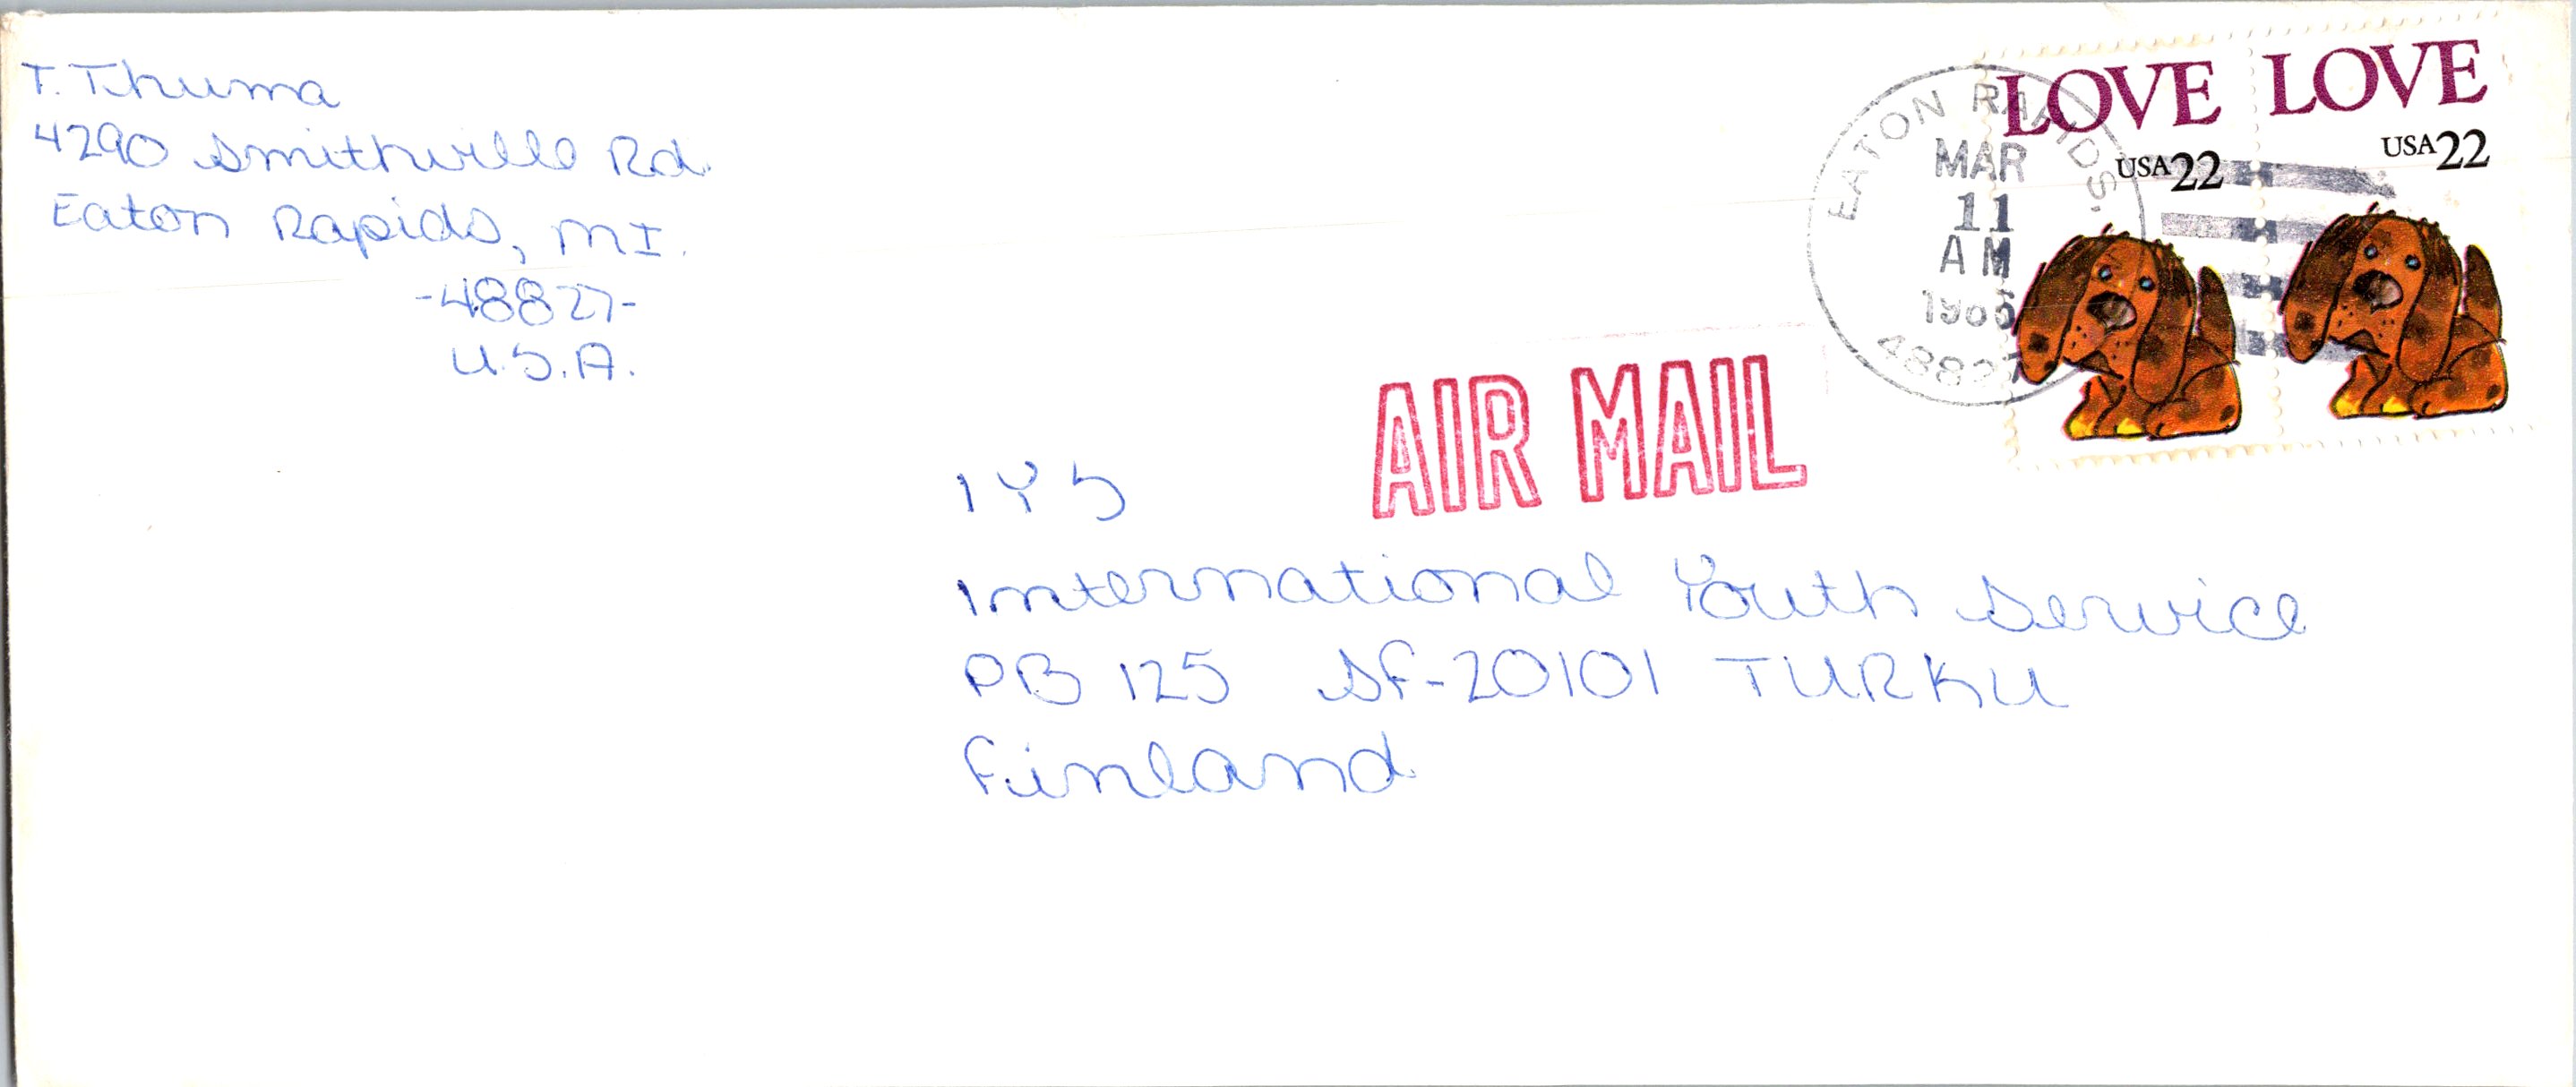 T. Thuma
4290 Smithville Rd.
Eaton Rapids, MI.
-48827-
U.S.A.
EATON RAPIDS,
MAR
11
AM
1986
48827
LOVE
USA 22
LOVE
USA 22
AIR MAIL
IYS
International Youth Service
PB 125 SF-20101 TURKU
Finland